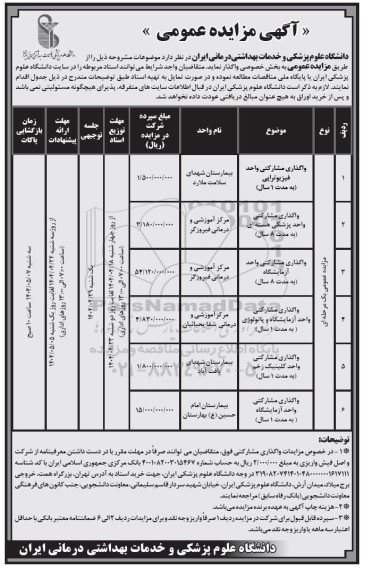 « آگهی مزایده عمومی »
دانشگاه علوم پزشکی و خدمات بهداشتی درمانی ایران در نظر دارد موضوعات مشروحه ذیل را از
طریق مزایده عمومی به بخش خصوصی واگذار نماید. متقاضیان واجد شرایط می توانند اسناد مربوطه را در سایت دانشگاه علوم
پزشکی ایران یا پایگاه ملی مناقصات مطالعه نموده و در صورت تمایل به تهیه اسناد طبق توضیحات مندرج در ذیل جدول اقدام
نمایند. لازم به ذکر است دانشگاه علوم پزشکی ایران در قبال اطلاعات سایت های متفرقه، پذیرای هیچگونه مسئولیتی نمی باشد
و پس از خرید اوراق به هیچ عنوان مبالغ دریافتی عودت داده نخواهد شد.
ردیف | نوع | موضوع | نام واحد | مبلغ سپرده شرکت در مزایده (ریال) | مهلت توزیع اسناد | جلسه توجیهی | مهلت ارائه پیشنهادات | زمان بازگشایی پاکات
مزایده عمومی یک مرحله ای
۱ واگذاری مشارکتی واحد فیزیوتراپی (به مدت ۱ سال) بیمارستان شهدای سلامت ملارد ۱/۵۰۰/۰۰۰/۰۰۰
۲ واگذاری مشارکتی واحد پزشکی هسته ای (به مدت ۸ سال) مرکز آموزشی و درمانی فیروزگر ۳/۱۸۰/۰۰۰/۰۰۰
۳ واگذاری مشارکتی واحد آزمایشگاه (به مدت ۸ سال) مرکز آموزشی و درمانی فیروزگر ۵۴/۱۲۰/۰۰۰/۰۰۰
۴ واگذاری مشارکتی واحد آزمایشگاه و پاتولوژی (به مدت ۱ سال) مرکز آموزشی و درمانی شفا یحیائیان ۴/۸۳۰/۰۰۰/۰۰۰
۵ واگذاری مشارکتی واحد کلینیک زخم (به مدت ۱ سال) بیمارستان شهدای یافت آباد ۱/۸۰۰/۰۰۰/۰۰۰
۶ واگذاری مشارکتی واحد آزمایشگاه (به مدت ۱ سال) بیمارستان امام حسین (ع) بهارستان ۱۵/۰۰۰/۰۰۰/۰۰۰
یک شنبه ۱۴۰۴/۰۴/۲۹
سه شنبه ۱۴۰۴/۰۵/۰۷ ساعت ۱۰ صبح
ParsNamadData
پایگاه اطلاع رسانی مناقصه و مزایده
توضیحات:
۱- در خصوص مزایدات واگذاری مشارکتی فوق، متقاضیان می توانند صرفاً در مهلت مقرر با در دست داشتن معرفینامه از شرکت
و اصل فیش واریزی به مبلغ ۲/۰۰۰/۰۰۰ ریال به حساب شماره ۴۰۰۱۰۸۲۰۰۳۰۱۵۴۶۷ بانک مرکزی جمهوری اسلامی ایران با کد شناسه
در وجه دانشگاه علوم پزشکی ایران، جهت خرید اسناد به آدرس تهران، بزرگراه همت، خروجی
برج میلاد، میدان آرش، دانشگاه علوم پزشکی ایران، خیابان شهید سردار قاسم سلیمانی، معاونت دانشجویی، جنب کانون های فرهنگی
معاونت دانشجویی (بانک رفاه سابق) مراجعه نمایند.
۲- هزینه چاپ آگهی به عهده برنده مزایده می باشد.
۳- سپرده قابل قبول برای شرکت در مزایده ردیف ۱ صرفاً واریز وجه نقد و برای مزایدات ردیف ۲ الی ۶ ضمانتنامه معتبر بانکی با حداقل
اعتبار سه ماهه یا واریز وجه نقد می باشد.
دانشگاه علوم پزشکی و خدمات بهداشتی درمانی ایران